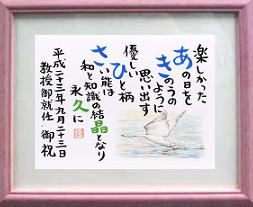 楽しかった
あの日を
きのうの
ように
思い出す
優しい
ひと柄
さい能は
和と知識の結晶となり
永久に
平成二十三年九月二十三日
教授御就任 御祝